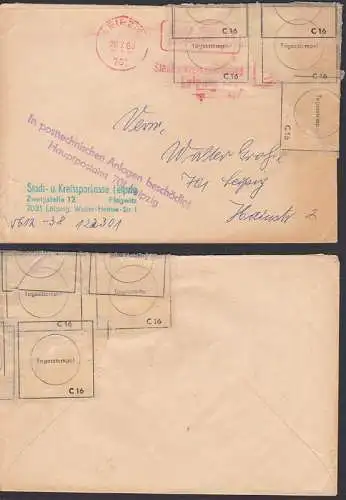 C 16
C 16
LEIPZIG
Tagesstempel
Tagesstempel
701
C 16
C 16
Tagesstempel
C 16
In posttechnischen Anlagen beschädigt
Hauptpostamt 701 Leipzig
Herrn
Walter Große
701 Leipzig
Hainstr. 2
Stadt- u. Kreissparkasse Leipzig
Zweigstelle 12 Plagwitz
7031 Leipzig, Walter-Heinze-Str. 1
5612-38 122301
Tagesstempel
Tagesstempel
C 16
C 16
Tagesstempel
C 16